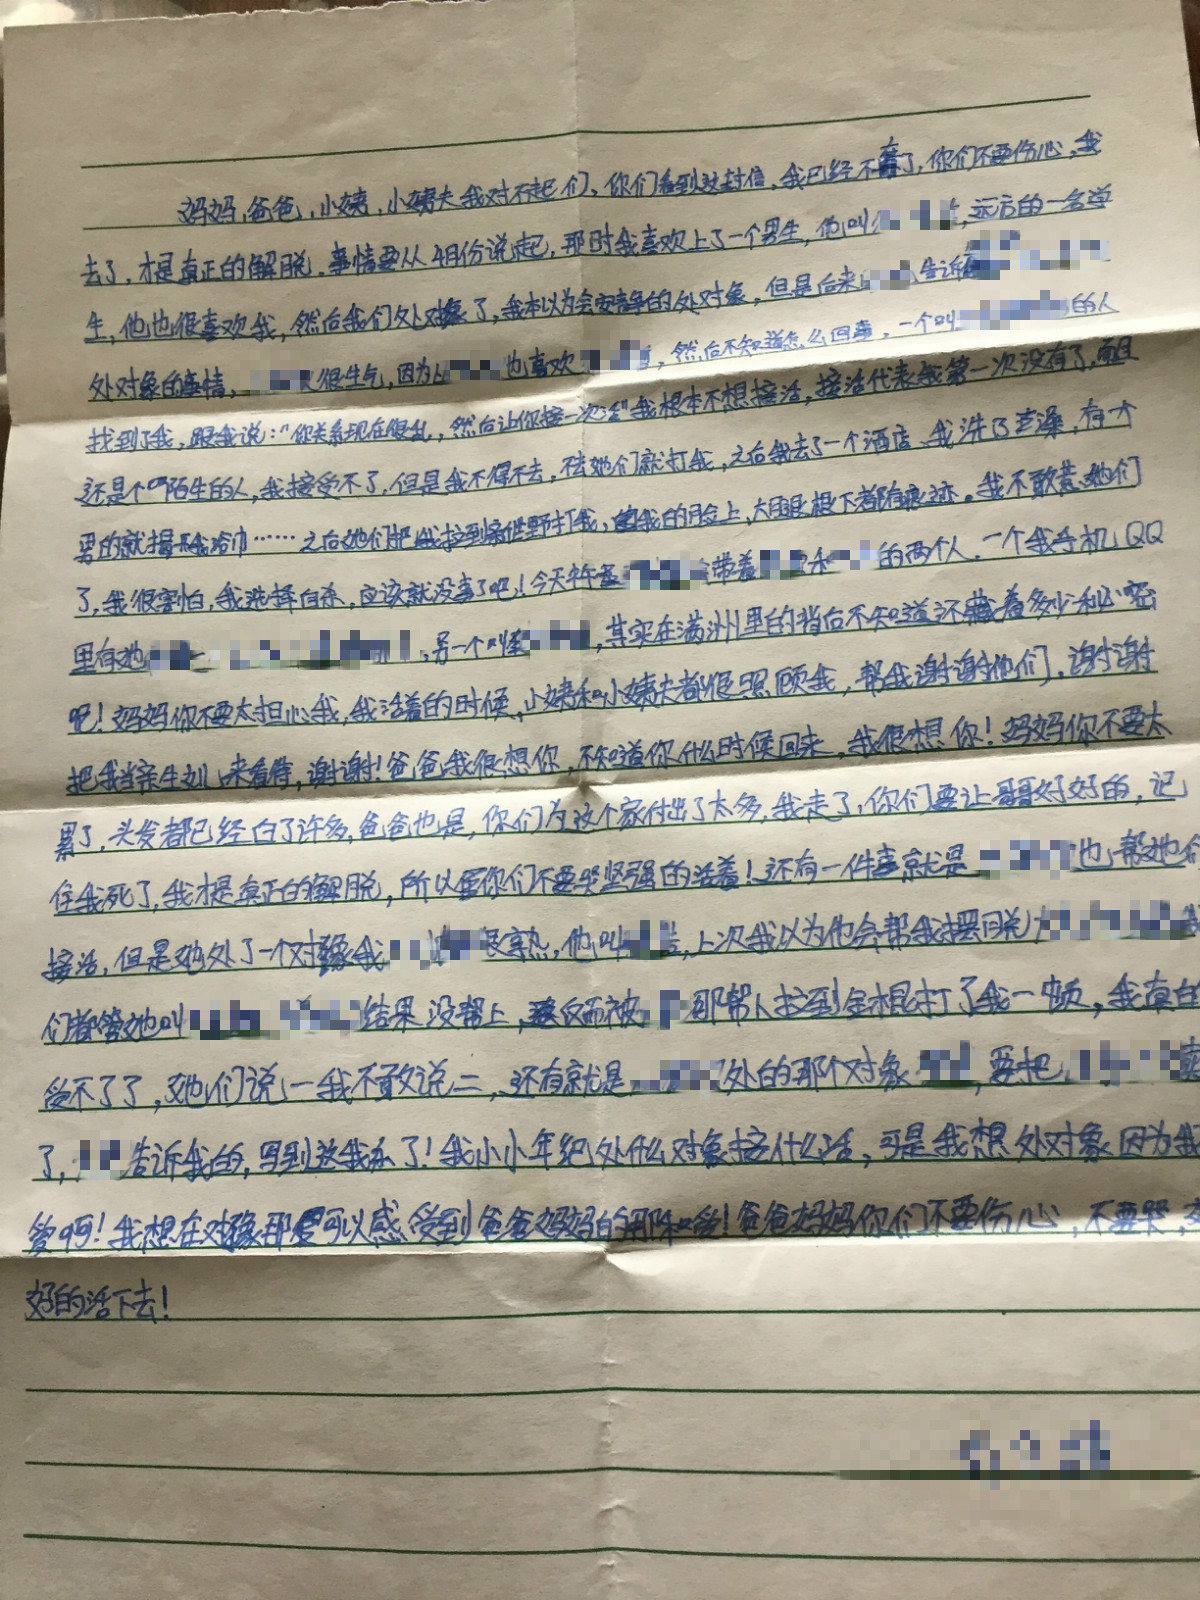 妈妈,爸爸,小姨,小姨夫我对不起们,你们看到这封信,我已经不在了,你们不要伤心,我
去了,才是真正的解脱.事情要从4月份说起,那时我喜欢上了一个男生,他叫,远方的一名学
生,他也很喜欢我,然后我们处对象了,我本以为会安静的处对象,但是后来告诉
处对象的事情,很生气,因为也喜欢,然后不知道怎么回事,一个叫的人
找到了我,跟我说:"你关系现在很乱,然后让你接一次活"我根本不想接活,接活代表我第一次没有了,而且
还是个陌生的人,我接受不了,但是我不得不去,不去她们就打我,之后我去了一个酒店,我洗了芒澡,有个
男的就揭我浴巾……之后她们把我拉到野打我,我的脸上,大腿根下都有痕迹。我不敢惹她们
了,我很害怕,我选择自杀,应该就没事了吧!今天中午带着和的两个人.一个我手机QQ
里有她,另一个叫,其实在满洲里的背后不知道还藏着多少秘密
吧!妈妈你不要太担心我,我活着的时候,小姨和小姨夫都很照顾我,帮我谢谢他们,谢谢
把我当亲生女儿来看待,谢谢!爸爸我很想你,不知道你什么时候回来,我很想你!妈妈你不要太
累了,头发都已经白了许多,爸爸也是,你们为这个家付出了太多,我走了,你们要让哥哥好好的,记
住我死了,我才是真正的解脱,所以你们不要哭坚强的活着!还有一件事就是也帮她们
接活,但是她处了一个对象我很熟,他叫,上次我以为他会帮我摆回说
们都管她叫结果没帮上,反而被那帮人拉到金棍打了我一顿,我真的
受不了了,她们说一我不敢说二,还有就是处的那个对象,要把
了,告诉我的,写到这我不了!我小小年纪处什么对象接什么活,可是我想处对象因为我
爱啊!我想在对象那可以感受到爸爸妈妈的爱!爸爸妈妈你们不要伤心,不要哭,
好的活下去!